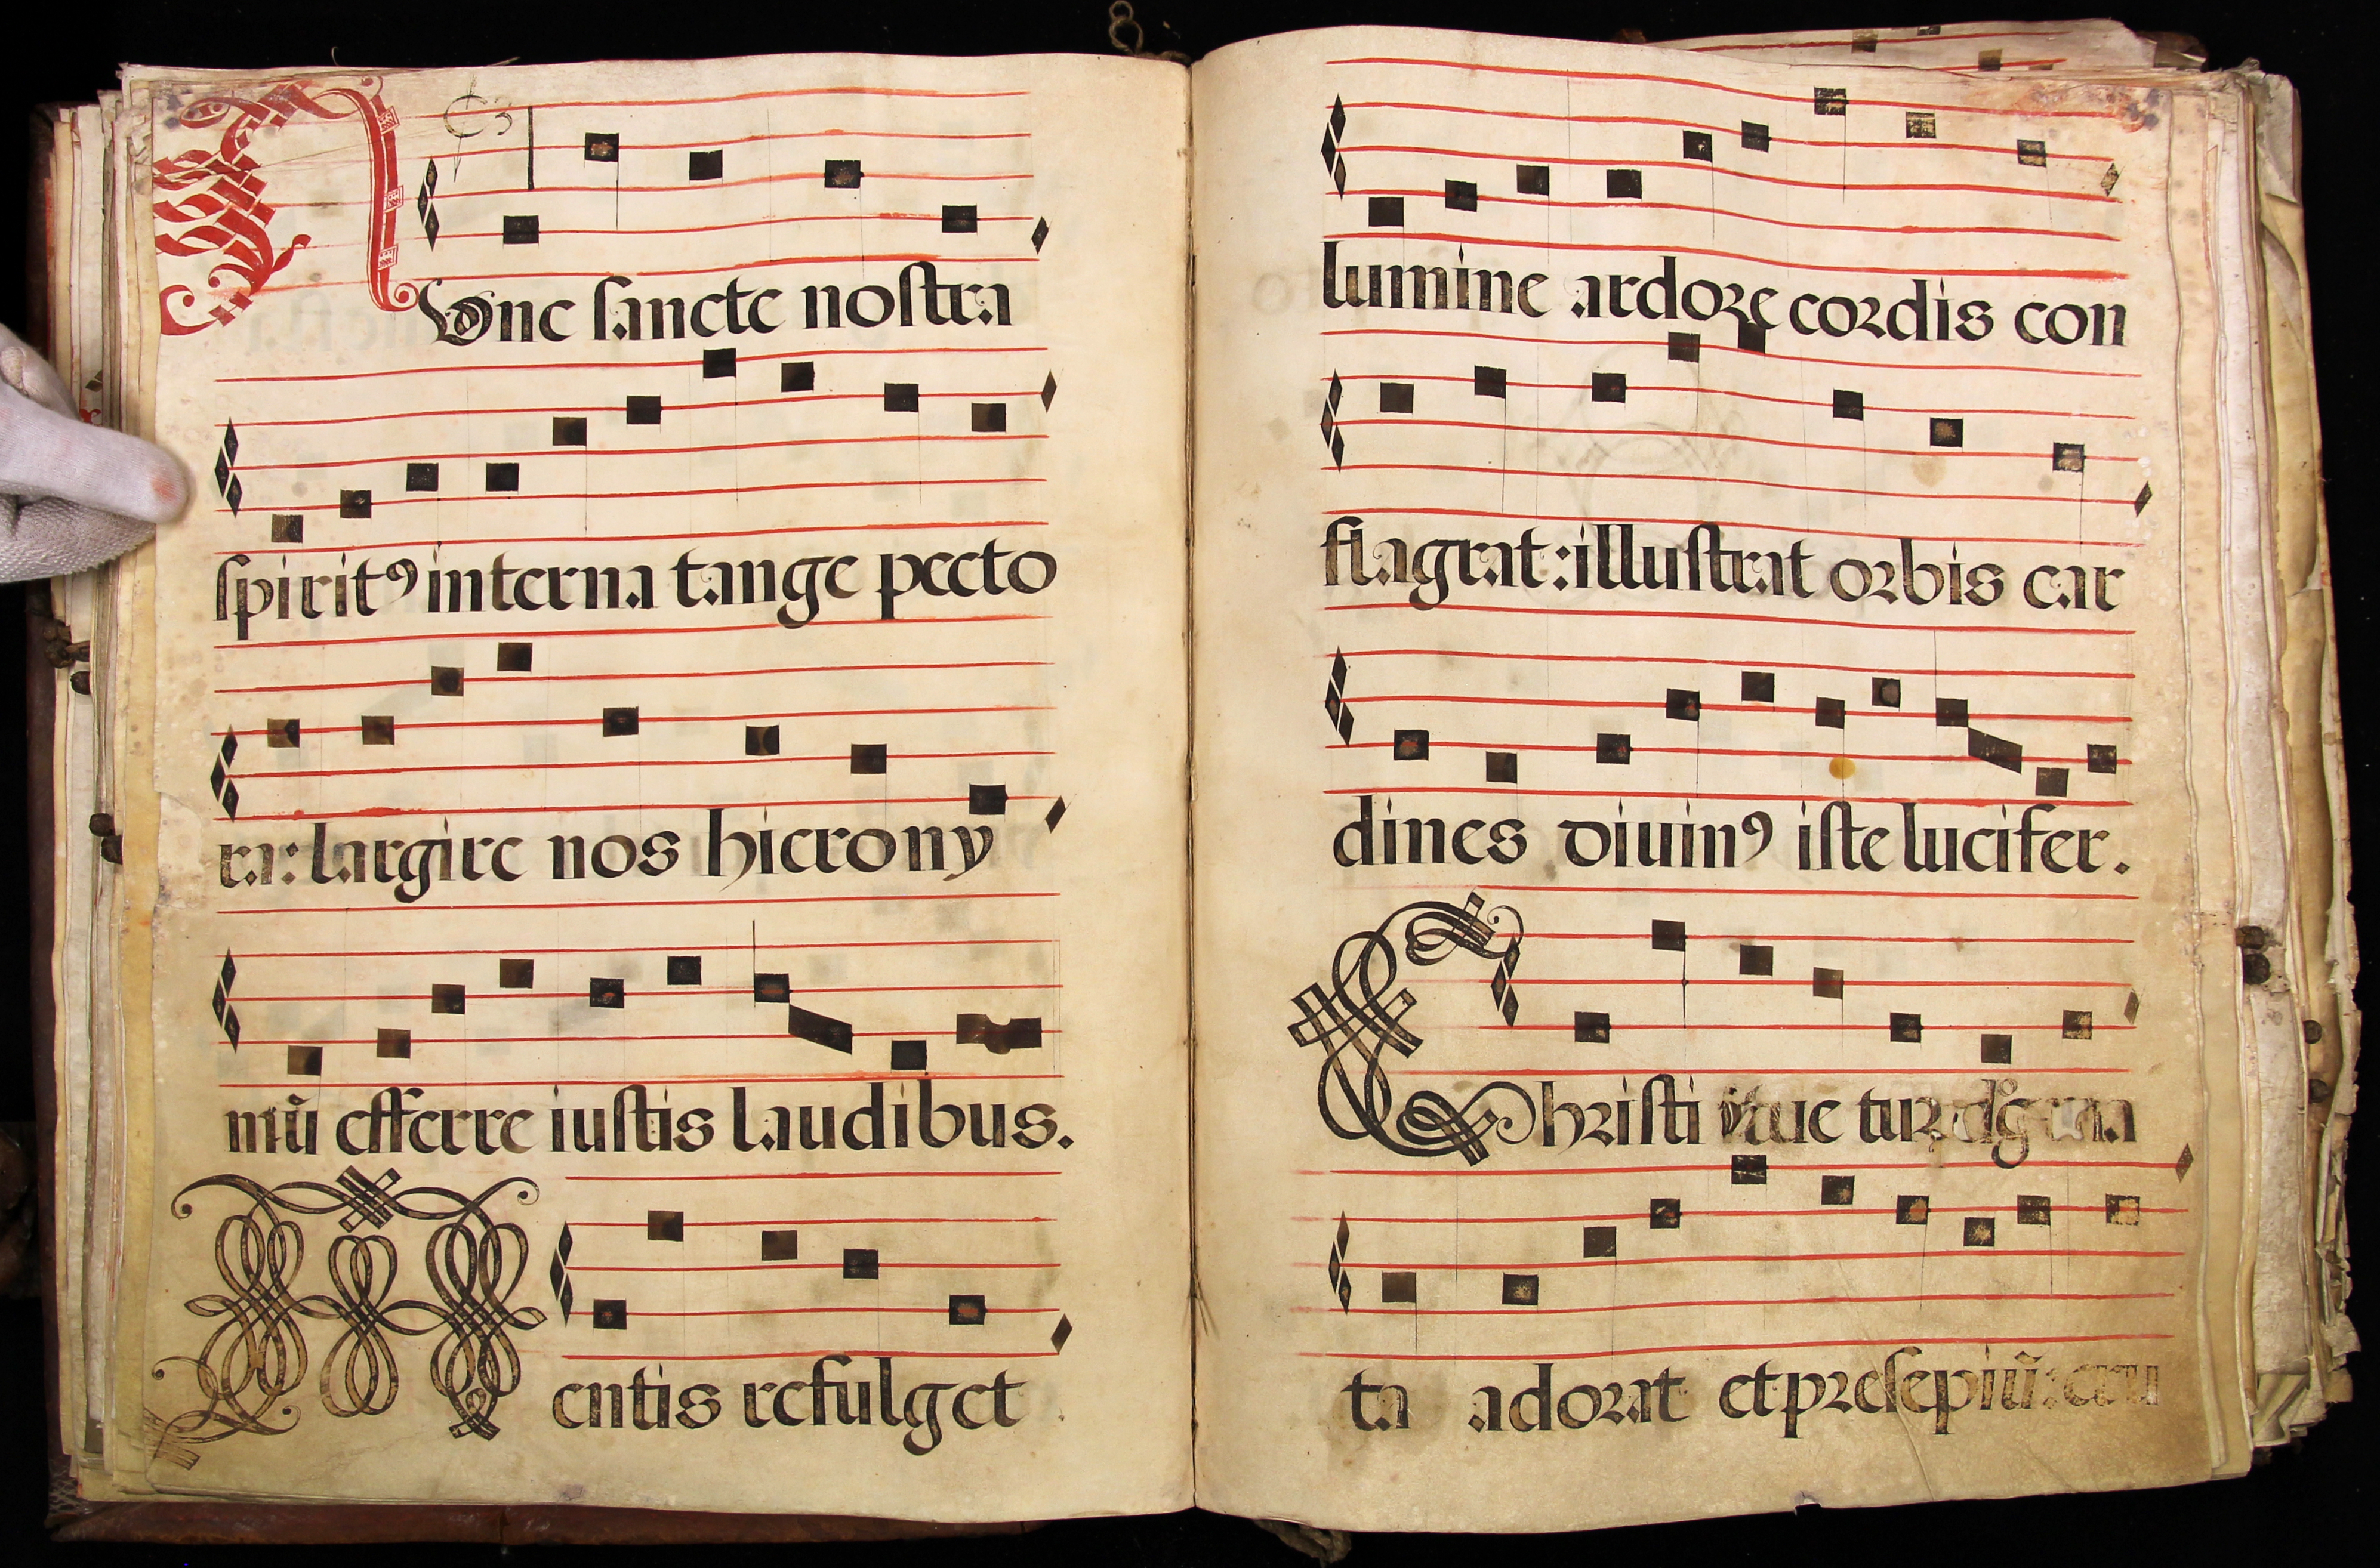 Nunc sancte nostra
spiritꝰ interna tange pecto
ra: largire nos hierony
mũ efferre iustis laudibus.
Mentis refulget
lumine ardore cordis con
flagrat: illustrat orbis car
dines diuinꝰ iste lucifer.
Christi
ta adorat et presepiũ: